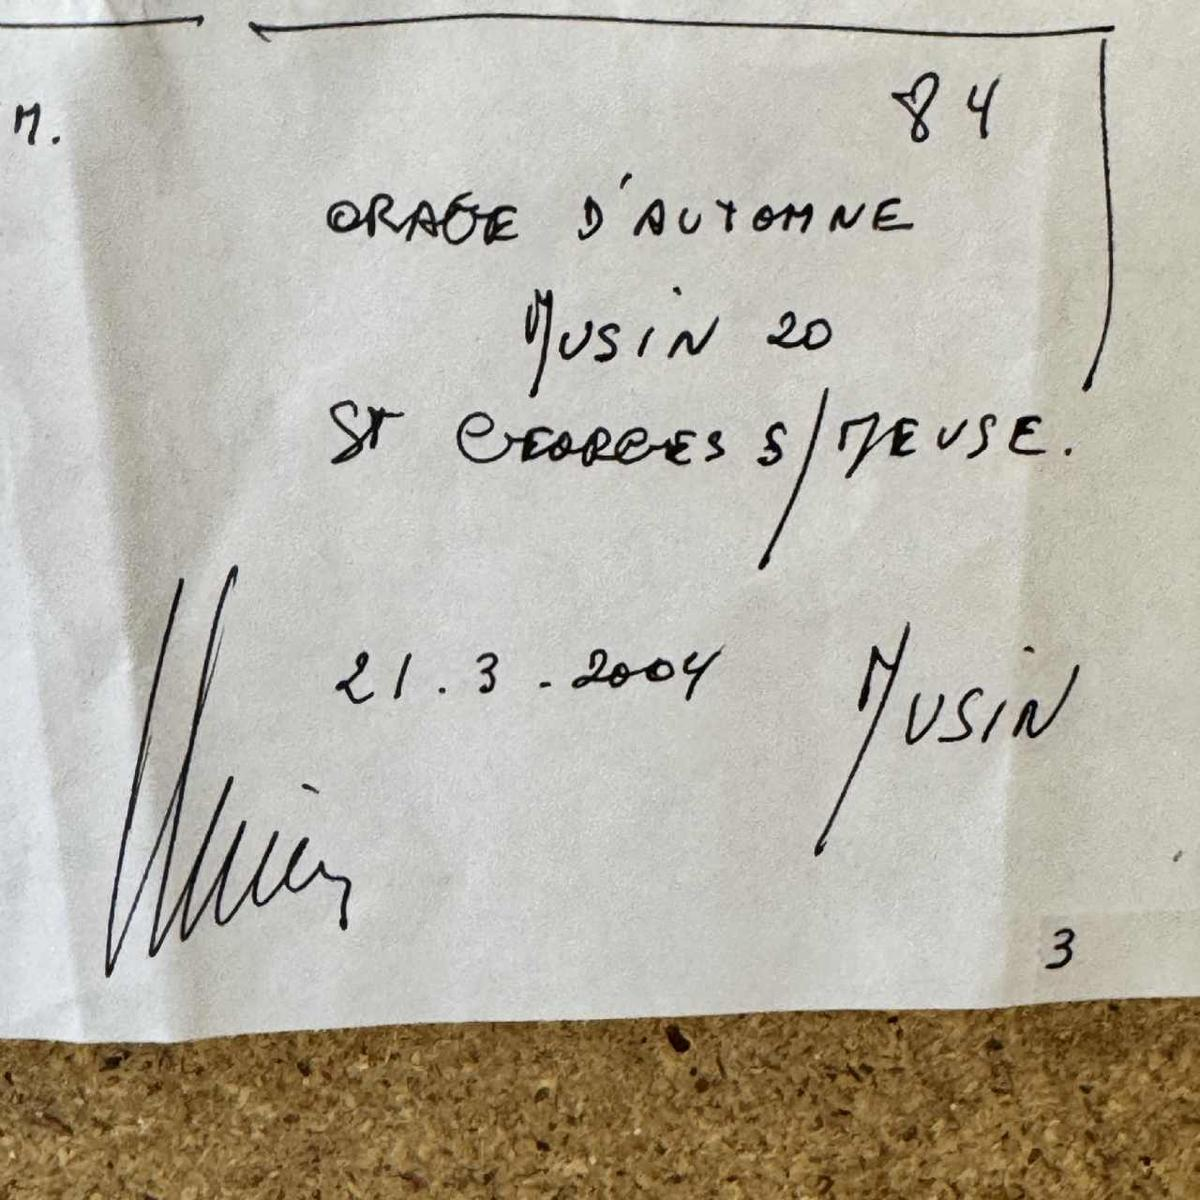 84
M.
ORAGE D'AUTOMNE
MUSIN 20
ST GEORGES S/MEUSE.
21.3.2004
MUSIN
3